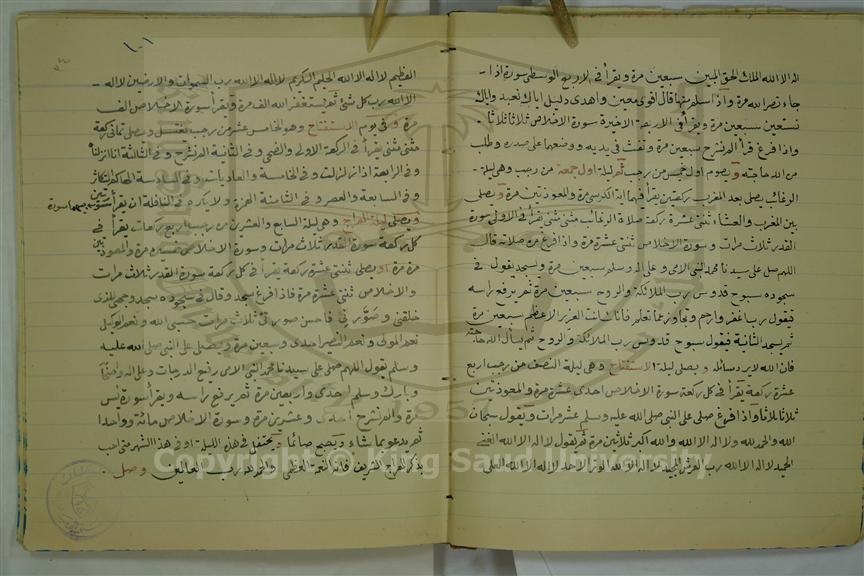 اله الا الله الملك الحق المبين سبعين مرة ويقرأ في الاربع الوسطى سورة اذا
جاء نصر الله مرة واذا سلم منها قال اقوى معين واهدى دليل اياك نعبد واياك
نستعين سبعين مرة ويقرأ في الاربعة الاخيرة سورة الاخلاص ثلاثا ثلاثا
واذا فرغ قرأ الم نشرح سبعين مرة ونفث في يديه ووضعهما على صدره وطلب
من الله حاجته ويصوم اول خميس من رجب ثم ليلة اول جمعة من رجب وهي ليلة
الرغائب يصلي بعد المغرب ركعتين يقرأ فيهما اية الكرسي مرة والمعوذتين مرة ويصلي
بين المغرب والعشاء ثنتي عشرة ركعة صلاة الرغائب مثنى مثنى يقرأ في الاولى سورة
القدر ثلاث مرات وسورة الاخلاص ثنتي عشرة مرة واذا فرغ من صلاته قال
اللهم صل على سيدنا محمد النبي الامي وعلى اله وسلم سبعين مرة ويسجد يقول في
سجوده سبوح قدوس رب الملائكة والروح سبعين مرة ثم يرفع راسه
فيقول رب اغفر وارحم وتجاوز عما تعلم فانك انت العزيز الاعظم سبعين مرة
ثم يسجد الثانية فيقول سبوح قدوس رب الملائكة والروح ثم يسأل الله حاجته
فان الله لا يرد سائله ويصلي ليلة الاستفتاح وهي ليلة النصف من رجب اربع
عشرة ركعة يقرأ في كل ركعة سورة الاخلاص احدى عشرة مرة والمعوذتين
ثلاثا ثلاثا واذا فرغ صلى على النبي صلى الله عليه وسلم عشر مرات ويقول سبحان
الله والحمد لله ولا اله الا الله والله اكبر ثلاثين مرة ثم يقول لا اله الا الله الغني
الحميد لا اله الا الله رب العرش المجيد لا اله الا الله الوتر الاحد لا اله الا الله العلي
١٠١
العظيم لا اله الا الله الحليم الكريم لا اله الا الله رب السموات والارضين لا اله
الا الله رب كل شئ ثم يستغفر الله الف مرة ويقرأ سورة الاخلاص الف
مرة وفي يوم الاستفتاح وهو الخامس عشر من رجب يغتسل ويصلي ثماني ركعة
مثنى مثنى يقرأ في الركعة الاولى والضحى وفي الثانية الم نشرح وفي الثالثة انا انزلناه
وفي الرابعة اذا زلزلت وفي الخامسة والعاديات وفي السادسة الهاكم التكاثر
وفي السابعة والعصر وفي الثامنة الهمزة ولا يكره في النافلة ان يقرأ سورتين بينهما سورة
ويصلي ليلة المعراج وهي ليلة السابع والعشرين من رجب اربع ركعات يقرأ في
كل ركعة سورة القدر ثلاث مرات وسورة الاخلاص خمسين مرة والمعوذتين
مرة مرة او يصلي ثنتي عشرة ركعة يقرأ في كل ركعة سورة القدر ثلاث مرات
والاخلاص ثنتي عشرة مرة فاذا فرغ سجد وقال في سجوده سجد وجهي للذي
خلقني وصورني فاحسن صورتي ثلاث مرات حسبي الله ونعم الوكيل
نعم المولى ونعم النصير احدى وسبعين مرة ويصلي على النبي صلى الله عليه
وسلم يقول اللهم صل على سيدنا محمد النبي الامي رفيع الدرجات وعلى اله
وبارك وسلم احدى واربعين مرة ثم يرفع راسه ويقرأ سورة يس
مرة والم نشرح احدى وعشرين مرة وسورة الاخلاص مائة وواحدا
ثم يدعو بما شاء ويصبح صائما ويحتفل في هذه الليلة او في هذا الشهر متى احب
بذكر المعراج الشريف فانه النعمة العظمى والحمد لله رب العالمين وصل
Copyright © King Saud University